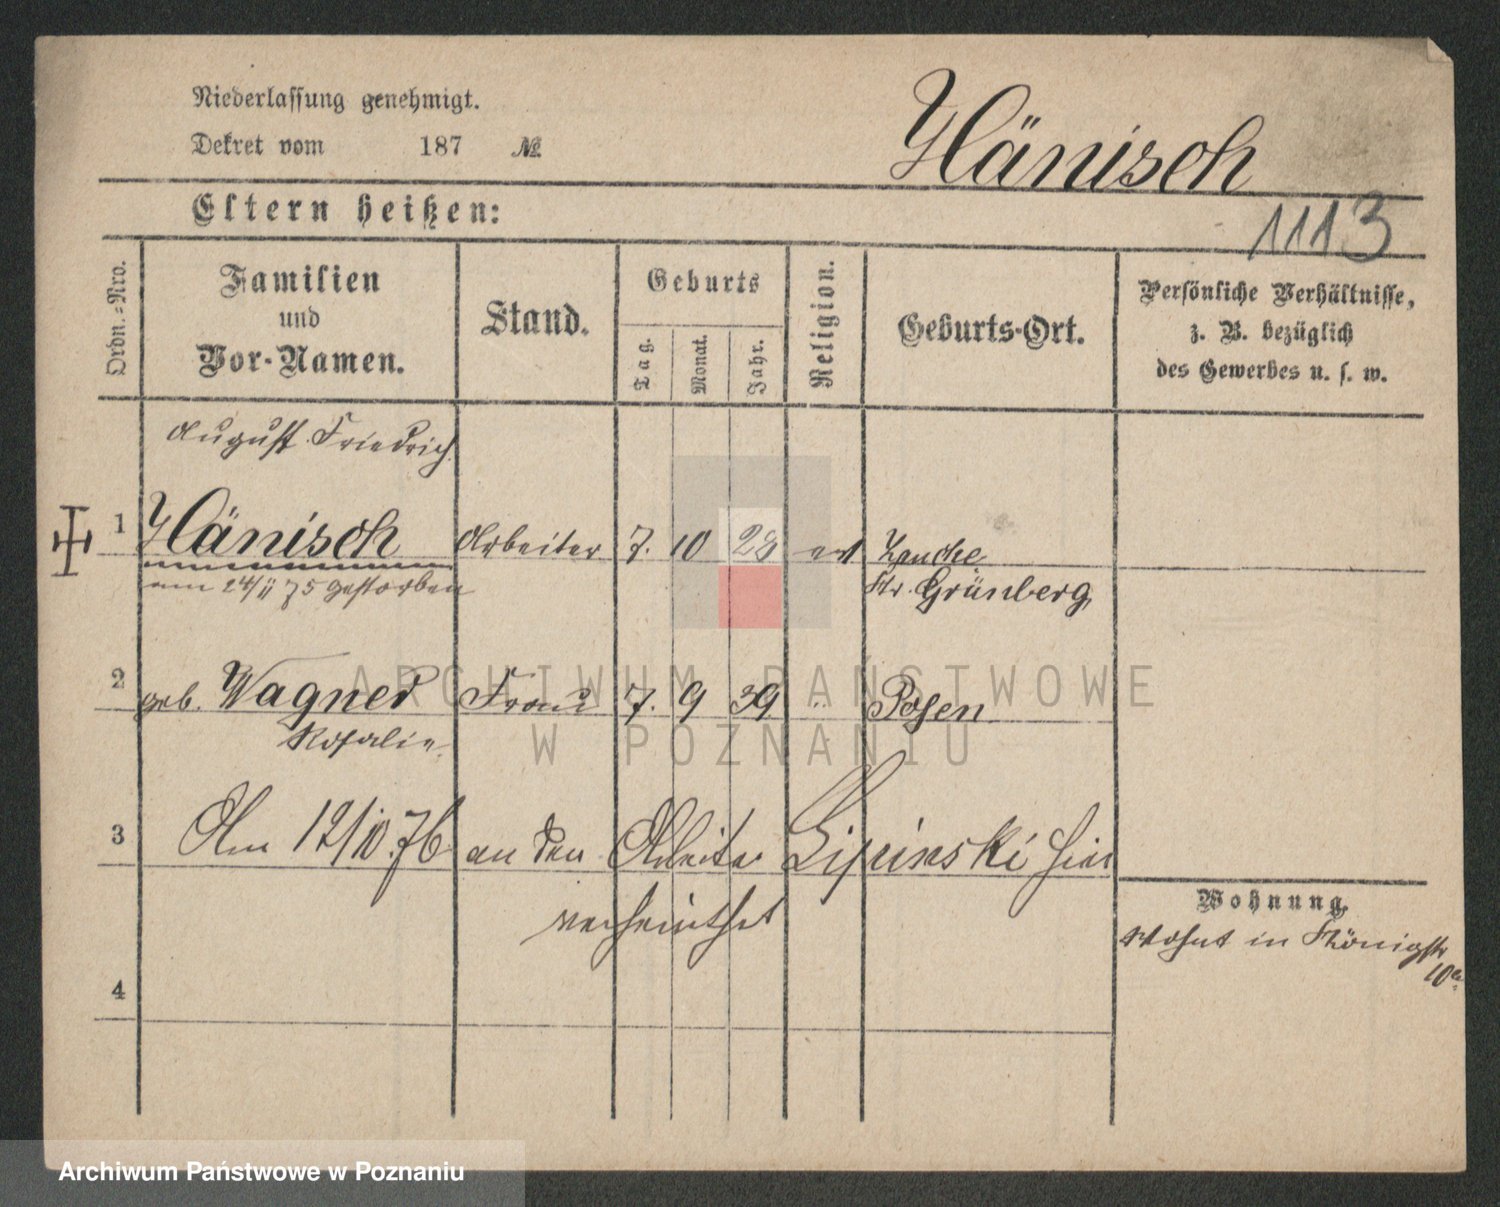 Niederlassung genehmigt.
Dekret vom 187 №
Hänisch
Eltern heißen:
1113
Ordn.-Nro.
Familien
und
Vor-Namen.
Stand.
Geburts
Tag.
Monat.
Jahr.
Religion.
Geburts-Ort.
Persönliche Verhältnisse,
z. B. bezüglich
des Gewerbes u. s. w.
August Friedrich
1 Hänisch Arbeiter 7. 10 28
am 24/11 75 gestorben
Kr. Grünberg
2 geb. Wagner Frau 7. 9 39 " Posen
Rosalie
3 Am 12/10.76 an den Arbeiter Lipinski hier
verheirathet
Wohnung.
Wohnt in Königstr
10a
4
ARCHIWUM PAŃSTWOWE
W POZNANIU
Archiwum Państwowe w Poznaniu